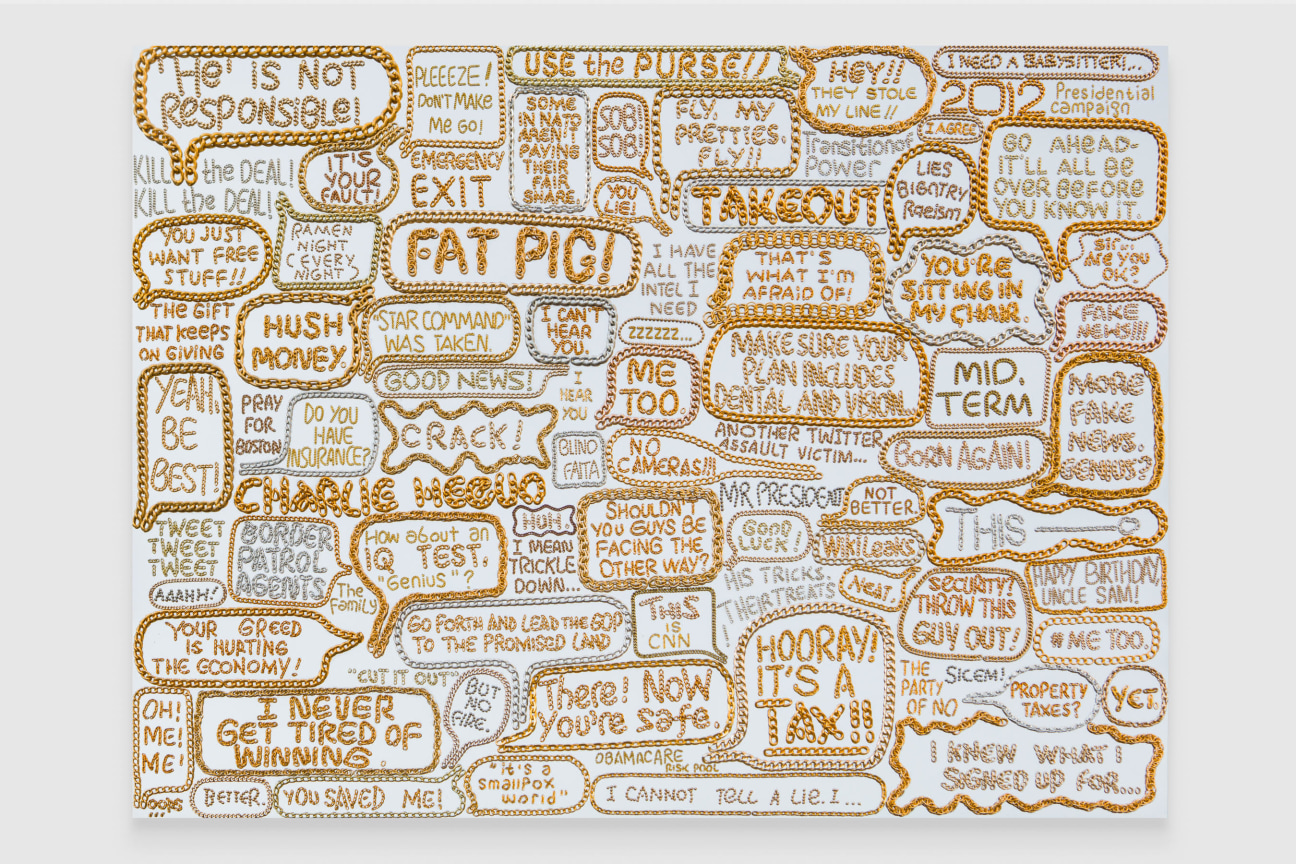 'He' IS NOT
RESPONSIBLE!
PLEEEZE!
DON'T MAKE
ME GO!
USE the PURSE!!
HEY!!
THEY STOLE
MY LINE!!
I NEED A BABYSITTER!...
2012 Presidential
Campaign
SOME
IN NATO
AREN'T
PAYING
THEIR
FAIR
SHARE.
SOB!
SOB!
SOB!
FLY, MY
PRETTIES.
FLY!!
I AGREE
GO AHEAD-
IT'LL ALL BE
OVER BEFORE
YOU KNOW IT.
Transitional
Power
KILL the DEAL!
KILL the DEAL!
IT'S
YOUR
FAULT!
EMERGENCY
EXIT
YOU
LIE!
TAKEOUT
LIES
BIGNTRY
Racism
YOU JUST
WANT FREE
STUFF!!
RAMEN
NIGHT
(EVERY
NIGHT)
FAT PIG!
I HAVE
ALL THE
INTEL I
NEED
THAT'S
WHAT I'm
AFRAID OF!
YOU'RE
SITTING IN
MY CHAIR.
Sir...
Are you
OK?
THE GIFT
THAT KEEPS
ON GIVING
HUSH
MONEY.
"STAR COMMAND"
WAS TAKEN.
I CAN'T
HEAR
YOU.
ZZZZZZ...
FAKE
NEWS!!!
MAKE SURE YOUR
PLAN INCLUDES
DENTAL AND VISION...
YEAH,
BE
BEST!
GOOD NEWS!
I
HEAR
YOU
ME
TOO.
MID.
TERM
MORE
FAKE
NEWS.
GENIUS?
PRAY
FOR
BOSTON
DO YOU
HAVE
INSURANCE?
CRACK!
BLIND
FAITA
NO
CAMERAS!!!
ANOTHER TWITTER
ASSAULT VICTIM...
BORN AGAIN!
CHARLIE HEBDO
MR PRESIDENT
NOT
BETTER.
THIS
TWEET
TWEET
TWEET
BORDER
PATROL
AGENTS
How about an
IQ TEST,
"Genius"?
HUH.
I MEAN
TRICKLE
DOWN...
SHOULDN'T
YOU GUYS BE
FACING THE
OTHER WAY?
GOOD
LUCK!
WIKILeaks
AAAHH!
The
Family
HIS TRICKS,
THEIR TREATS!
NEAT.
SECURITY?
THROW THIS
GUY OUT!
HAPPY BIRTHDAY,
UNCLE SAM!
YOUR GREED
IS HURTING
THE ECONOMY!
GO FORTH AND LEAD THE GOP
TO THE PROMISED LAND
THIS
IS
CNN
HOORAY!
IT'S A
TAX!!
# ME TOO.
"CUT IT OUT"
BUT
NO
FIRE.
There! NOW
you're safe.
THE
PARTY
OF NO
SICEM!
PROPERTY
TAXES?
YET.
OH!
ME!
ME!
I NEVER
GET TIRED OF
WINNING.
OBAMACARE
RISK POOL
I KNEW WHAT I
SIGNED UP FOR...
oops
BETTER.
YOU SAVED ME!
"it's a
smallpox
world"
I CANNOT TELL A LIE. I...